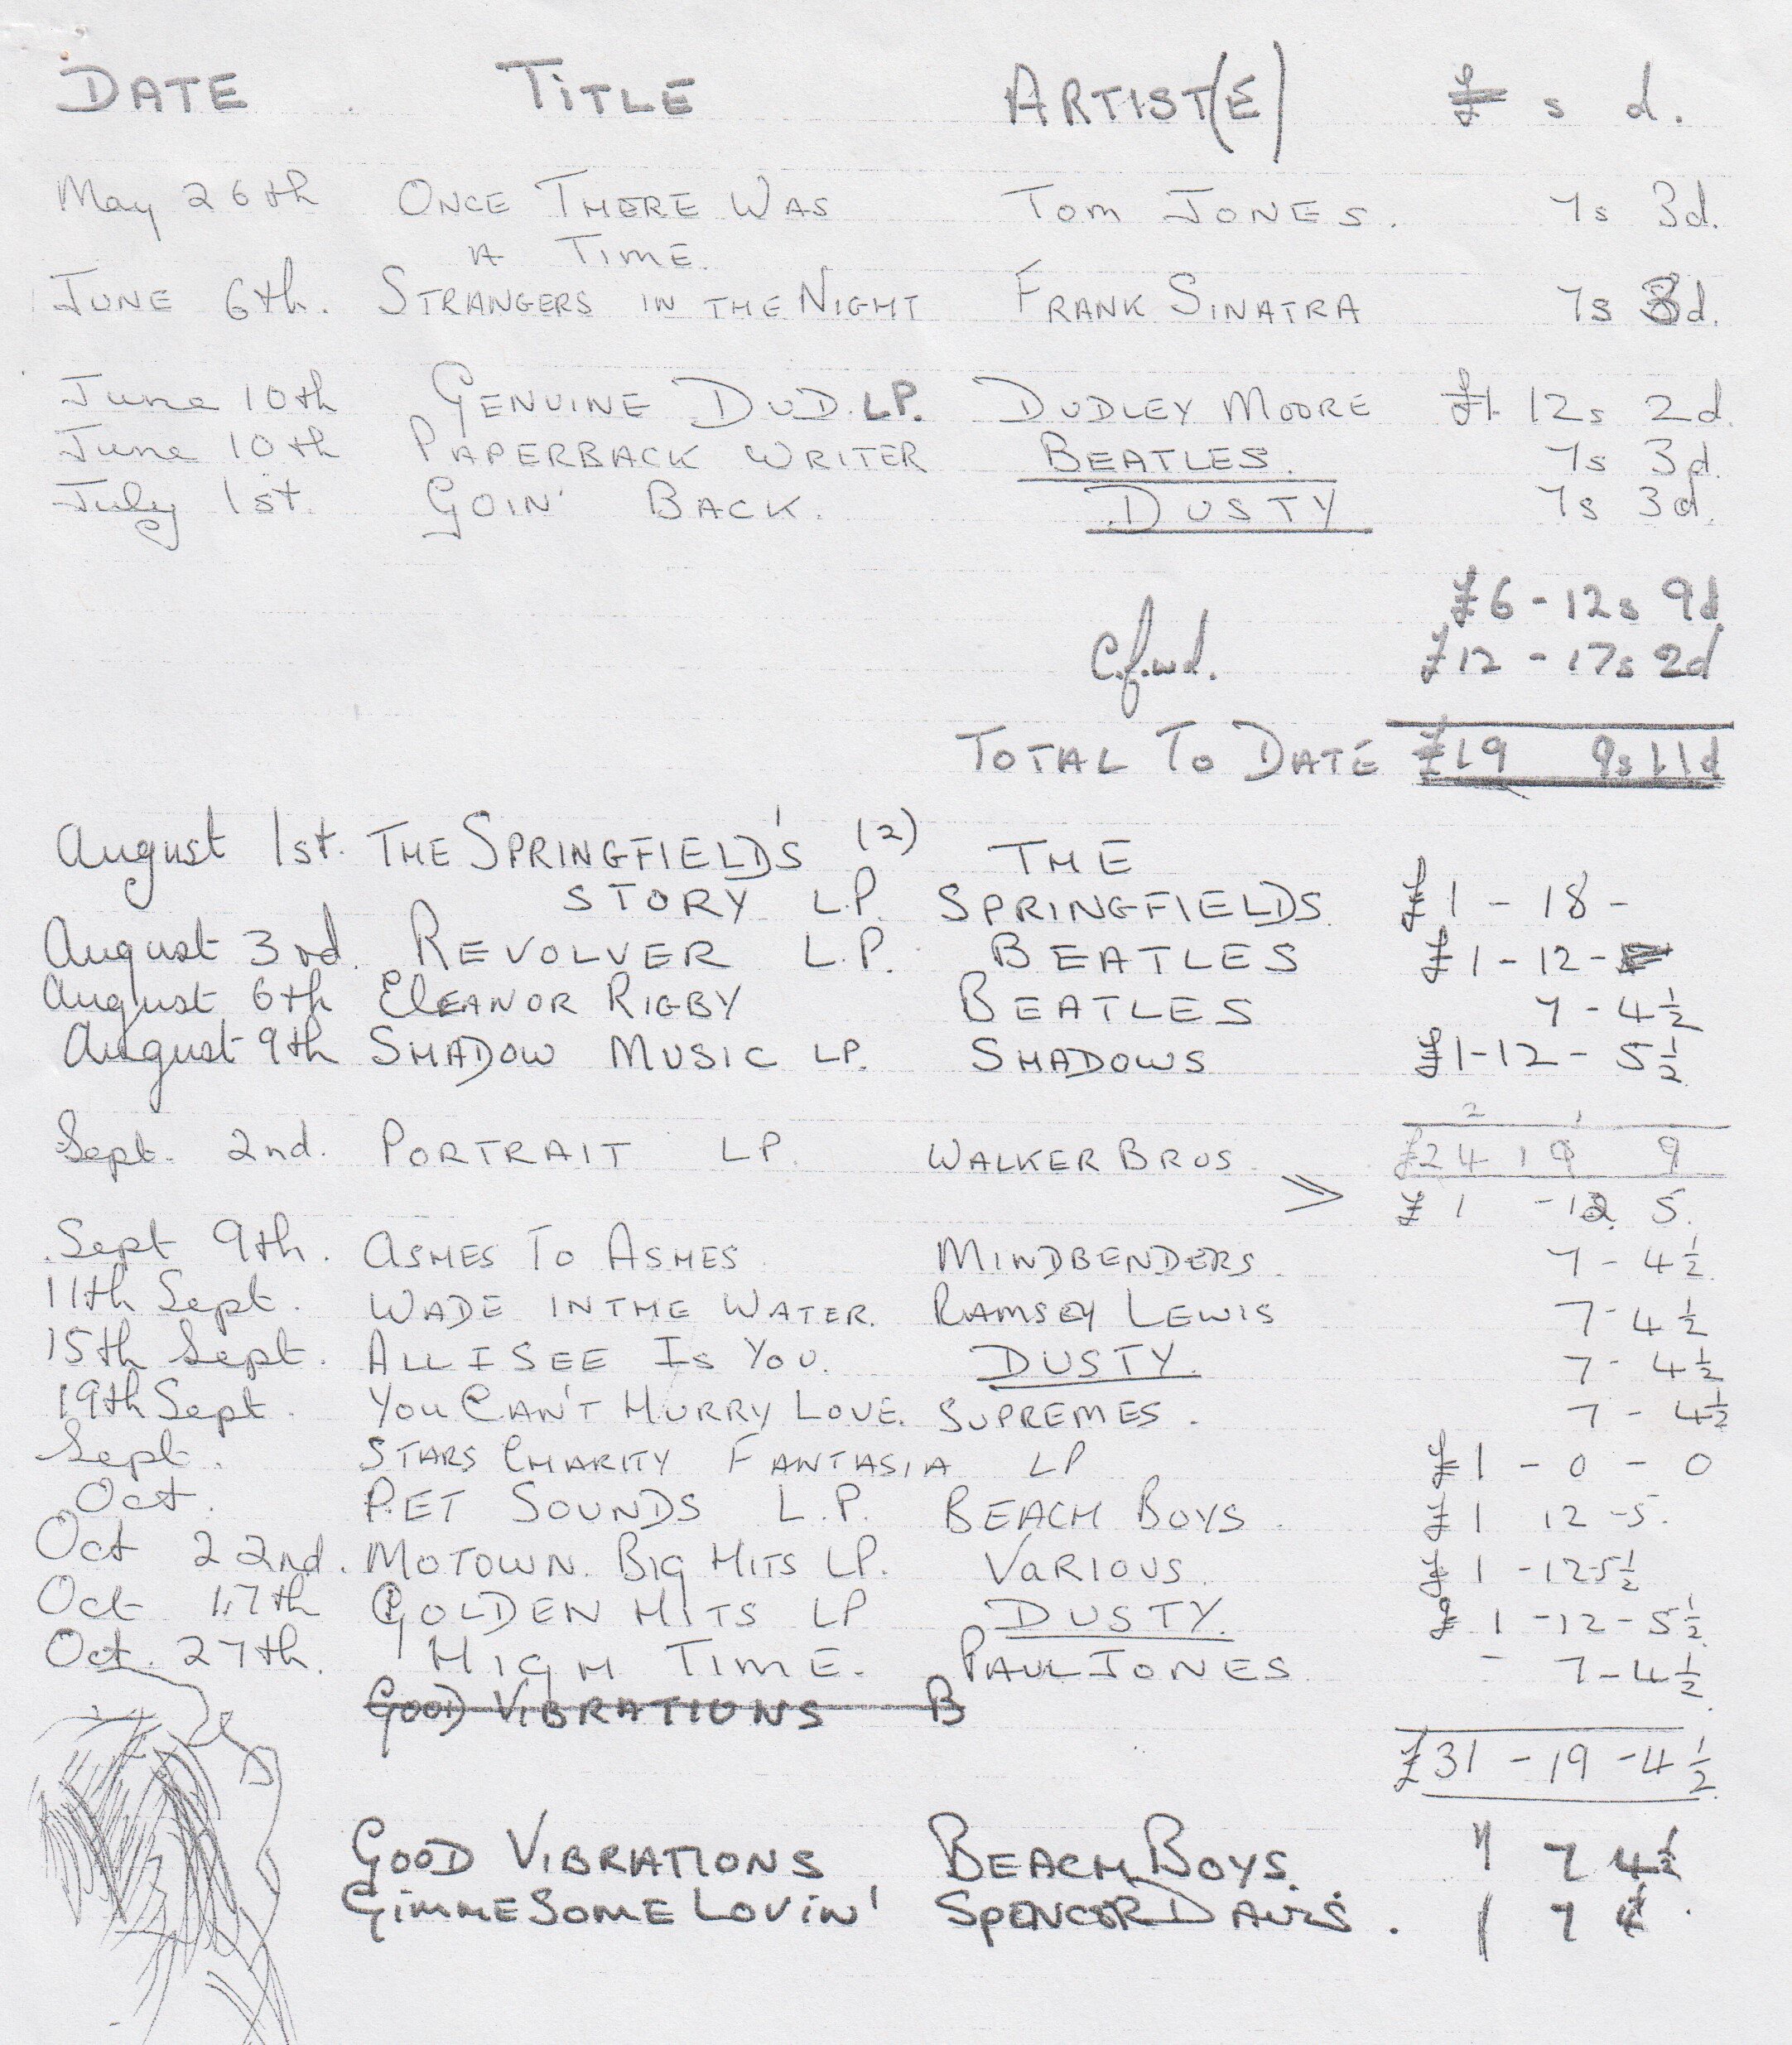 DATE TITLE ARTIST(E) £ s d.
May 26th ONCE THERE WAS TOM JONES. 7s 3d.
A TIME.
JUNE 6th. STRANGERS IN THE NIGHT FRANK SINATRA 7s 3d.
June 10th GENUINE DUD. LP. DUDLEY MOORE £1 12s 2d.
June 10th PAPERBACK WRITER BEATLES. 7s 3d.
July 1st. GOIN' BACK. DUSTY 7s 3d.
£6 - 12s 9d
c.f.wd. £12 - 17s 2d
TOTAL TO DATE £19 9s 11d
August 1st. THE SPRINGFIELD'S (2) THE
STORY L.P. SPRINGFIELDS. £1 - 18 -
August 3rd. REVOLVER L.P. BEATLES £1 - 12 -
August 6th ELEANOR RIGBY BEATLES 7 - 4 1/2
August 9th SHADOW MUSIC LP. SHADOWS £1 - 12 - 5 1/2
2 1
Sept. 2nd. PORTRAIT LP. WALKER BROS. £24 19 9
£1 - 12 5.
Sept 9th. ASHES TO ASHES MINDBENDERS. 7 - 4 1/2
11th Sept. WADE IN THE WATER. RAMSEY LEWIS 7 - 4 1/2
15th Sept. ALL I SEE IS YOU. DUSTY. 7 - 4 1/2
19th Sept. YOU CAN'T HURRY LOVE. SUPREMES. 7 - 4 1/2
Sept. STARS CHARITY FANTASIA LP £1 - 0 - 0
Oct. PET SOUNDS L.P. BEACH BOYS. £1 12 - 5.
Oct 22nd. MOTOWN. BIG HITS LP. VARIOUS. £1 - 12 5 1/2
Oct 17th GOLDEN HITS LP DUSTY. £1 - 12 - 5 1/2
Oct. 27th. HIGH TIME. PAUL JONES. - 7 - 4 1/2
GOOD VIBRATIONS B
£31 - 19 - 4 1/2
GOOD VIBRATIONS BEACH BOYS. 7 4 1/2
GIMME SOME LOVIN' SPENCER DAVIS. 7